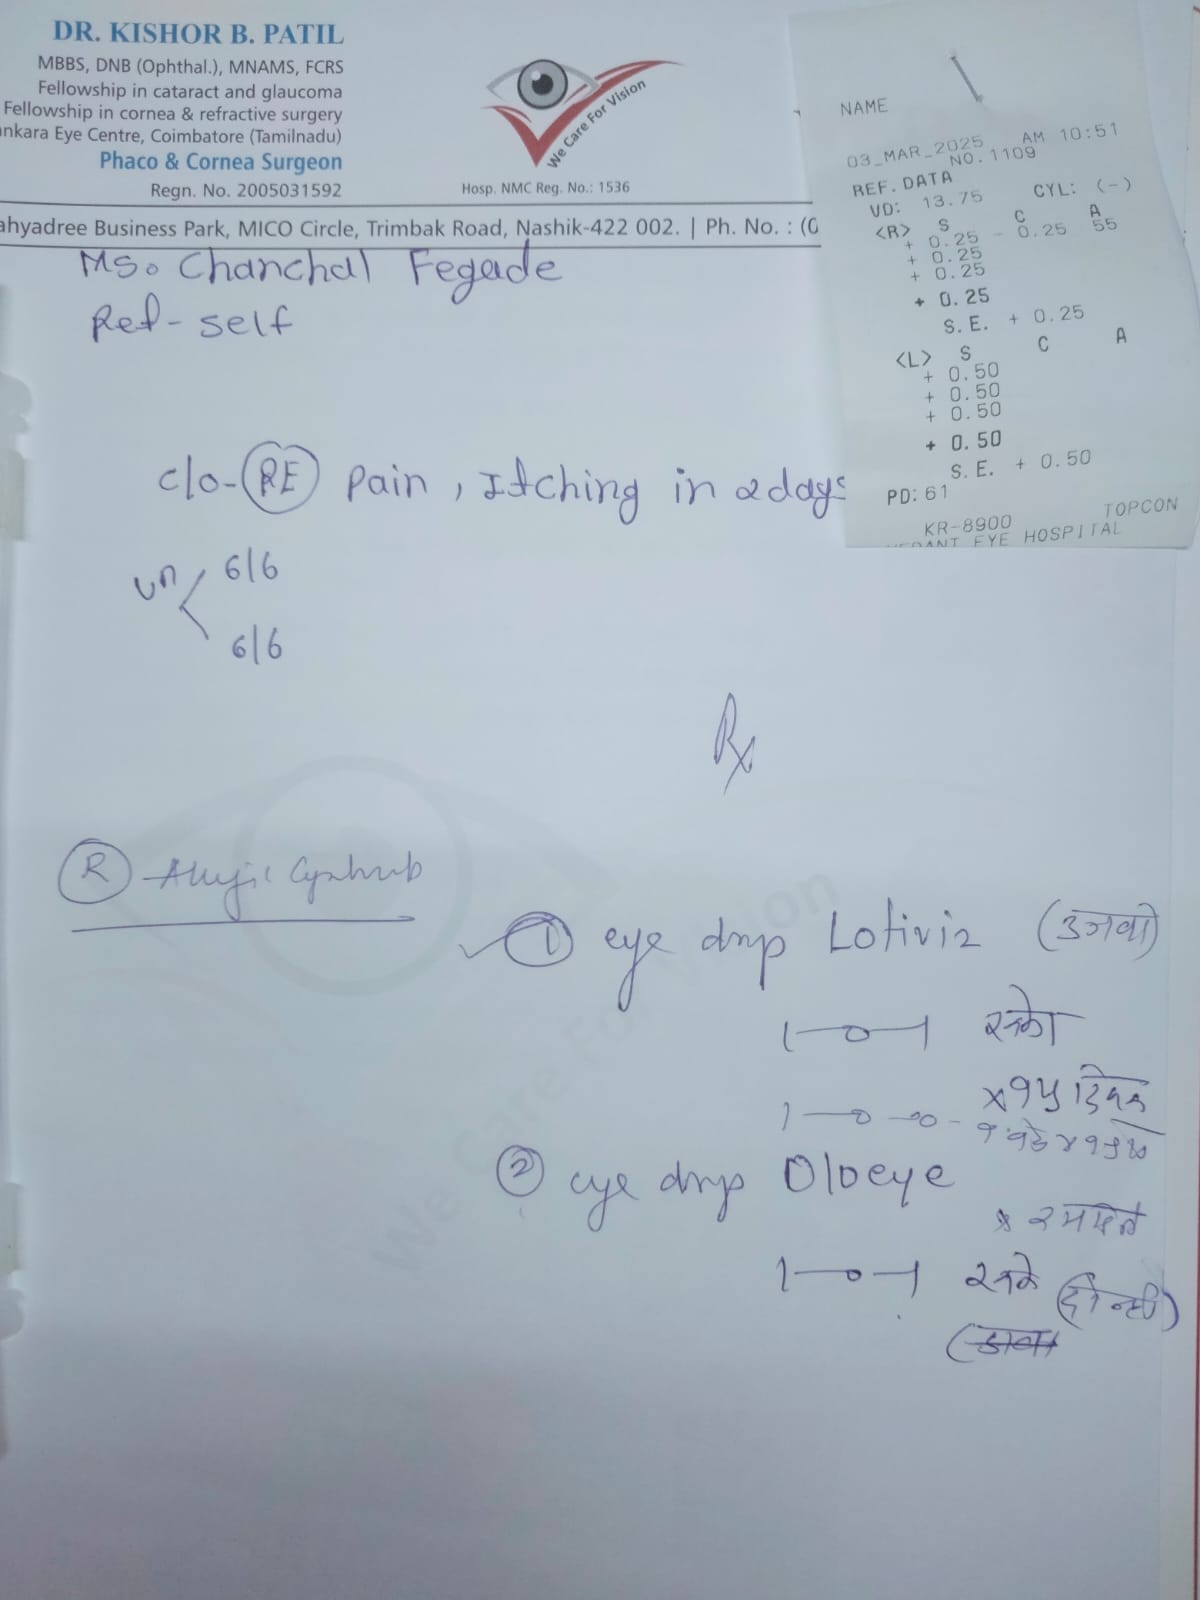 DR. KISHOR B. PATIL
MBBS, DNB (Ophthal.), MNAMS, FCRS
Fellowship in cataract and glaucoma
Fellowship in cornea & refractive surgery
ankara Eye Centre, Coimbatore (Tamilnadu)
Phaco & Cornea Surgeon
Regn. No. 2005031592
We Care For Vision
Hosp. NMC Reg. No.: 1536
ahyadree Business Park, MICO Circle, Trimbak Road, Nashik-422 002. | Ph. No. : (0
NAME
03_MAR_2025 AM 10:51
NO. 1109
REF. DATA
VD: 13.75 CYL: (-)
<R> S C A
+ 0.25 - 0.25 55
+ 0.25
+ 0.25
+ 0.25
S.E. + 0.25
<L> S C A
+ 0.50
+ 0.50
+ 0.50
+ 0.50
S.E. + 0.50
PD: 61
KR-8900 TOPCON
EYE HOSPITAL
Ms. Chanchal Fegade
Ref - self
c/o - RE pain, Itching in 2 days
Vn 6/6
6/6
Rx
R
① eye drop Lotiviz (उजवा)
1-0-1
x १५ दिवस
1-0-0-
② eye drop Oloeye
x २
1-0-1 (दोन्ही)
We Care For Vision